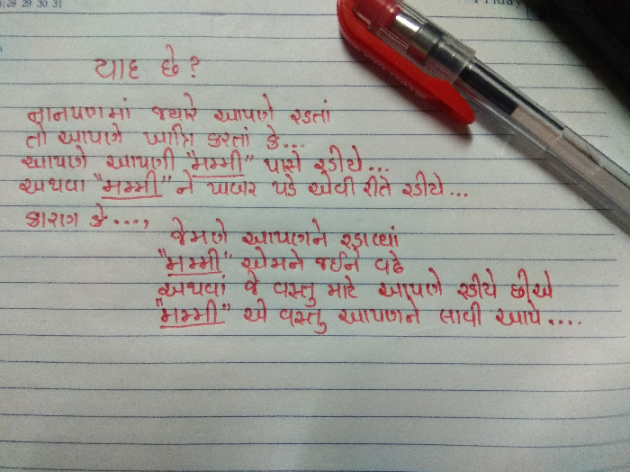 28 29 30 31
યાદ છે?
નાનપણમાં જ્યારે આપણે રડતાં
તો આપણે ખાત્રિ કરતાં કે...
આપણે આપણી "મમ્મી" પાસે રડીયે...
અથવા "મમ્મી" ને ખબર પડે એવી રીતે રડીયે...
કારણ કે....,
જેમણે આપણને રડાવ્યાં
"મમ્મી" એમને જઈને વઢે
અથવાં જે વસ્તુ માટે આપણે રડીયે છીએ
"મમ્મી" એ વસ્તુ આપણને લાવી આપે....